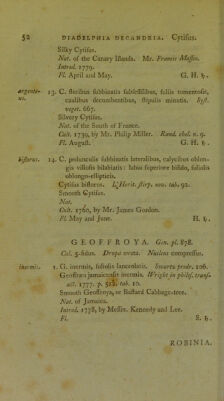 52 DIADELPHIA DECANDRIA. Cytisus.
Silky Cytisus.
Nat. of the Canary Islands. Mr. Francis Masson.
Introd. 1779.
Fl. April and May. G. H. ♄.
argenteus. 13. C. floribus subbinatis subsessilibus, foliis tomentosis,
caulibus decumbentibus, stipulis minutis. Syst.
veget. 667.
Silvery Cytisus.
Nat. of the South of France.
Cult. 1739, by Mr. Philip Miller. Rand. chel. n. 9.
Fl. August. G. H. ♄.
biflorus. 14. C. pedunculis subbinatis lateralibus, calycibus oblongis
villosis bilabiatis: labio superiore bifido, foliolis
oblongo-ellipticis.
Cytisus biflorus. L'Herit. stirp. nov. tab. 92.
Smooth Cytisus.
Nat.
Cult. 1760, by Mr. James Gordon.
Fl. May and June. H. ♄.
GEOFFROYA. Gen. pl. 878.
Cal. 5-fidus. Drupa ovata. Nucleus compressus.
inermis. 1. G. inermis, foliolis lanceolatis. Swartz prodr. 106.
Geoffræa jamaicensis inermis. Wright in philos. transact.
1777. p. 512. tab. 10.
Smooth Geoffroya, or Bastard Cabbage-tree.
Nat. of Jamaica.
Introd. 1778, by Messrs. Kennedy and Lee.
Fl. S. ♄.
ROBINIA.